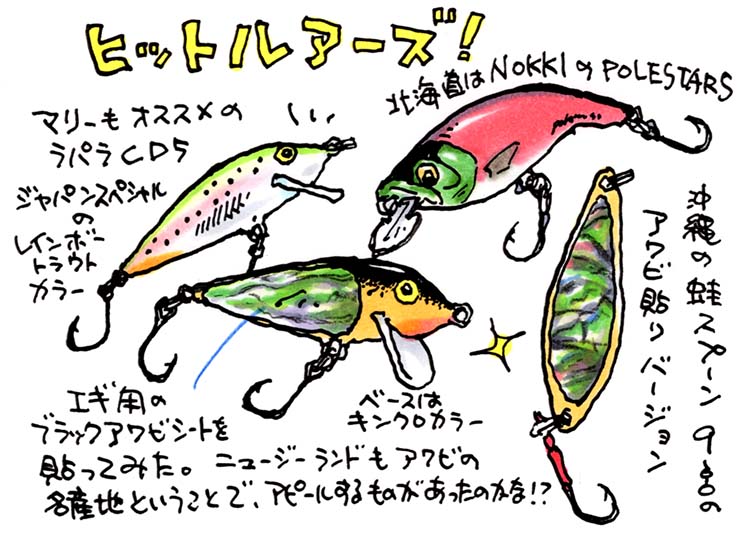 ヒットルアーズ!
マリーもオススメの
ラパラCD5
ジャパンスペシャル
の
レインボー
トラウト
カラー
北海道はNOKKIのPOLESTARS
沖縄の蛙スプーン 9gの
アワビ貼りバージョン
ベースは
キンクロカラー
エギ用の
ブラックアワビシートを
貼ってみた。ニュージーランドもアワビの
名産地ということで、アピールするものがあったのかな!?